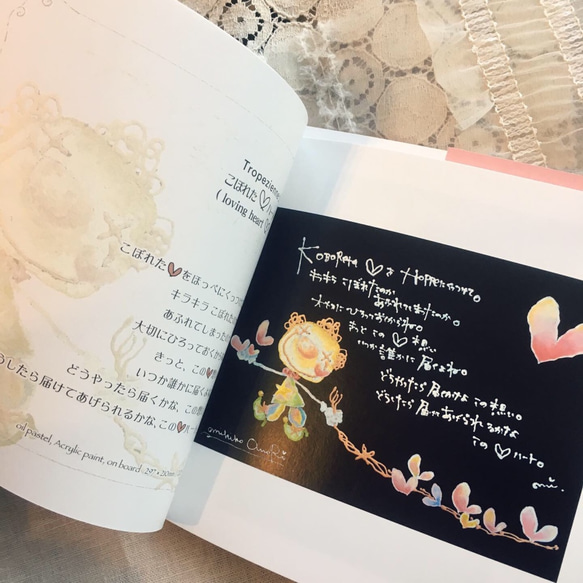 Tropezienne
こぼれた♡
( loving heart
こぼれた♥をほっぺにくっつ
キラキラ こぼれた
あふれてしまった
大切にひろっておくから
きっと、この
いつか誰かに届くよ
どうやったら届くかな、この
うしたら届けてあげられるかな、この♥
oil pastel, Acrylic paint, on board
KOBORETA ♡を HOPPEにくっつけて。
キラキラ こぼれたのか
あふれてしまったのか。
大切にひろっておくからね。
きっと この♡想い
いつか誰かに 届くよね。
どうやったら 届くかな この想い。
どうしたら 届けてあげられるかな
この♡ハート。